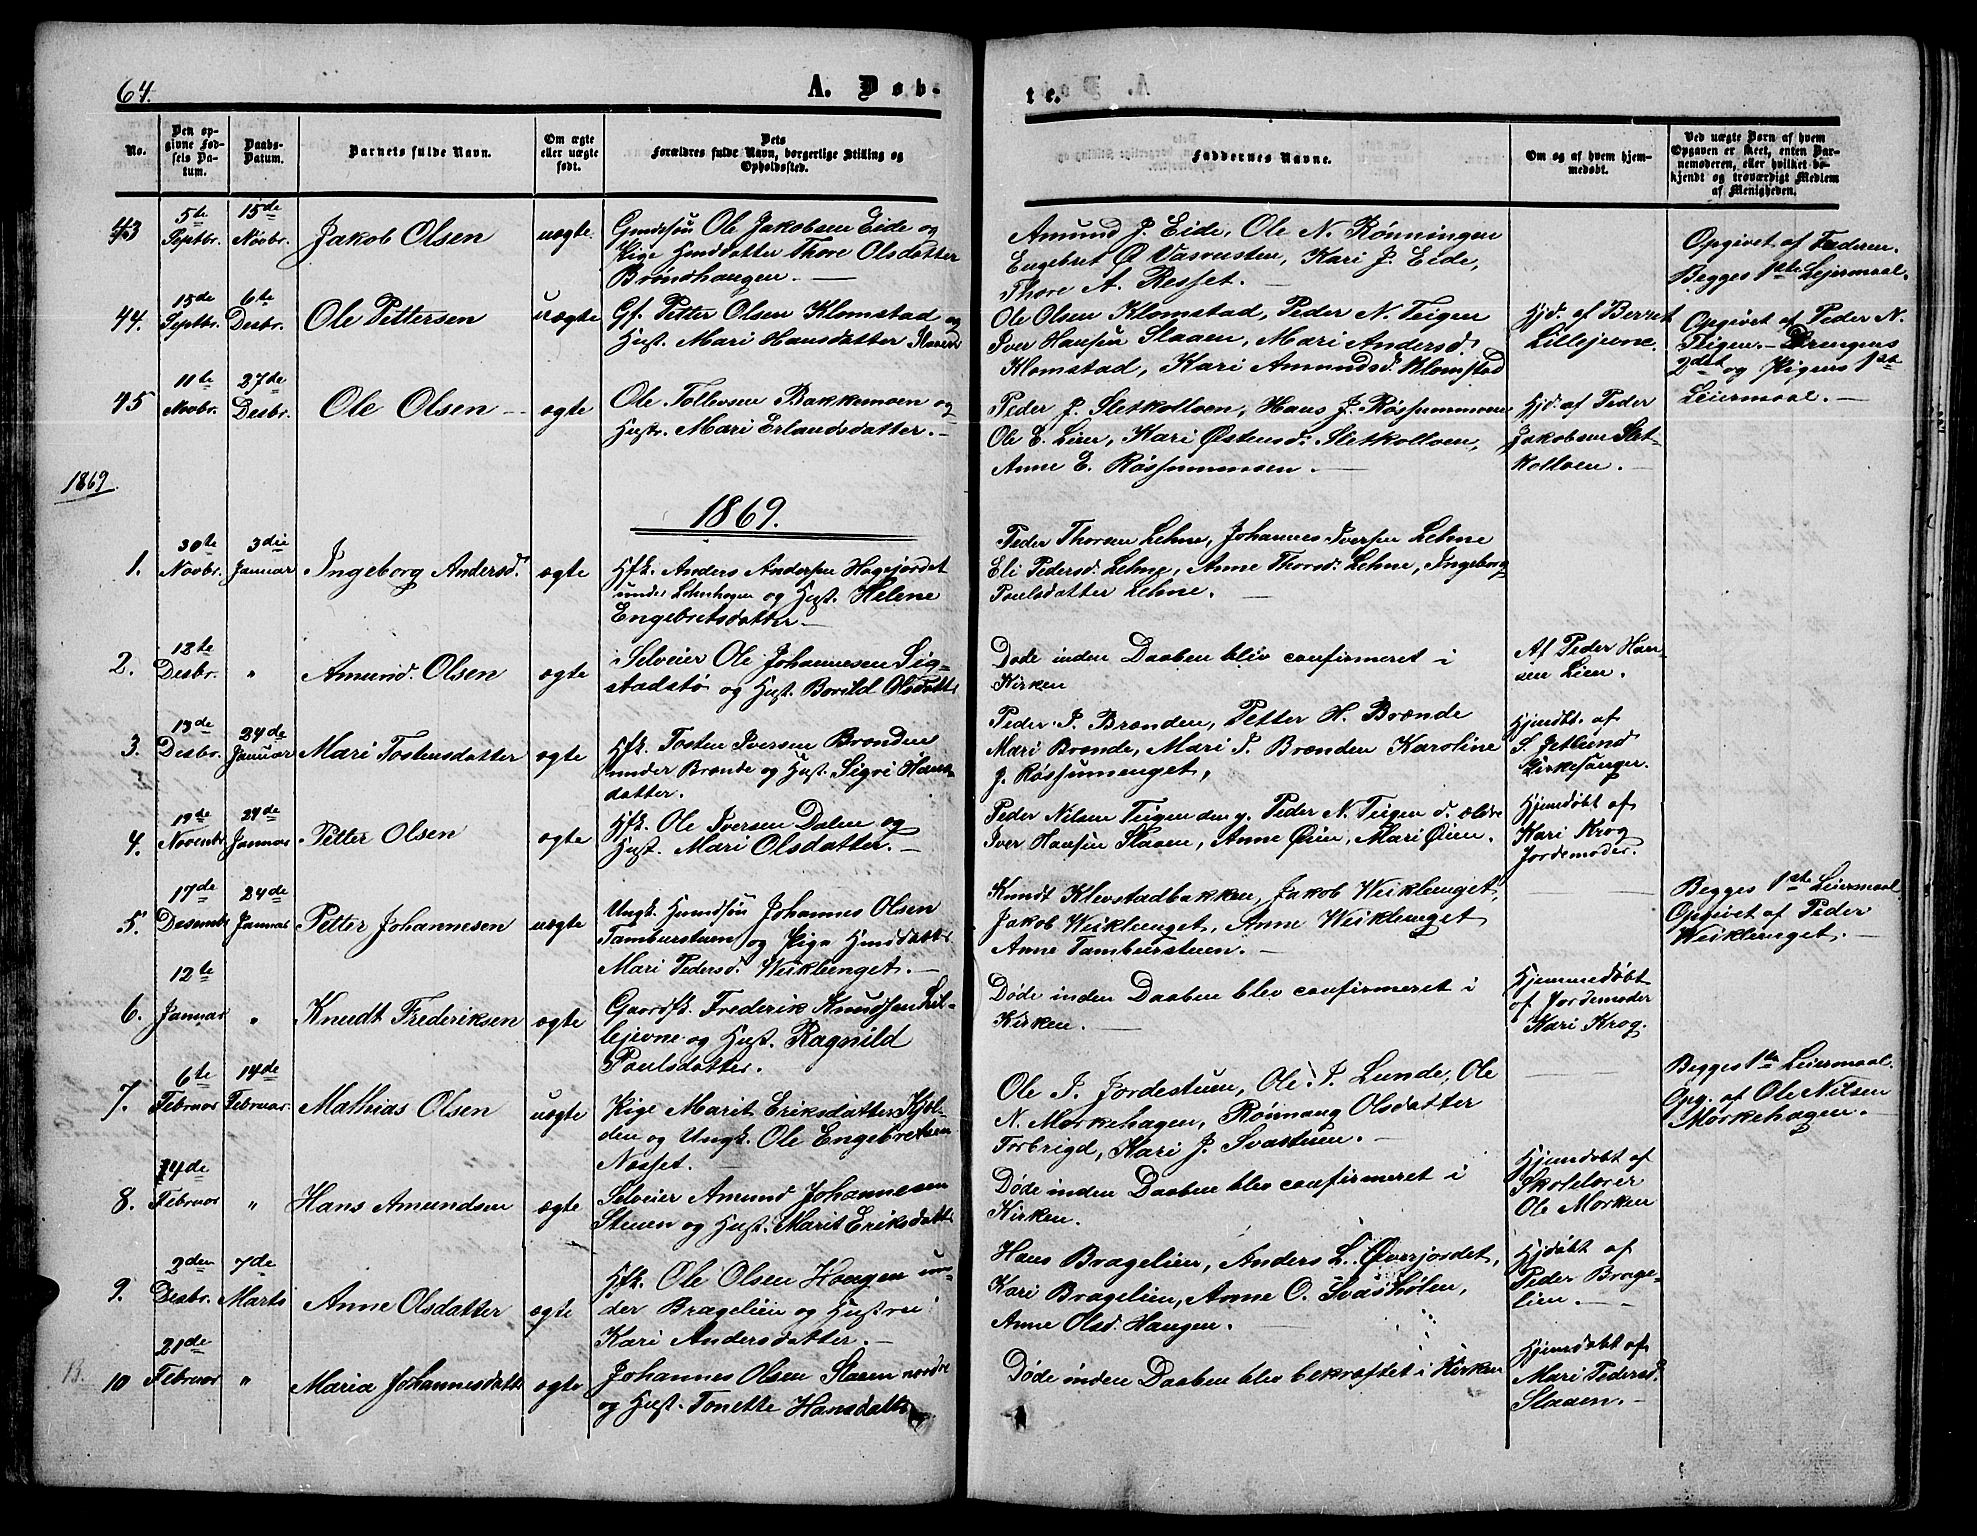 64.
A. Døb-
te.
No.
Den op-
givne Fød-
sels Da-
tum.
Daabs-
Datum.
Barnets fulde Navn.
Om ægte
eller uægte
født.
Dets
Forældres fulde Navn, borgerlige Stilling og
Opholdssted.
Faddernes Navne.
Om og af hvem hjem-
medøbt.
Ved uægte Barn af hvem
Opgaven er skeet, enten Bar-
nemoderen, eller hvilket be-
kjendt og troværdigt Medlem
af Menigheden.
43
5te
Septbr.
15de
Novbr.
Jakob Olsen
uægte.
Gmdssøn Ole Jakobsen Eide og
Pige Hmddatter Thore Olsdatter
Brøndhaugen. —
Amund J. Eide, Ole N. Rønningen
Engebret Ø Vasrusten, Kari J. Eide,
Thore A. Resset. —
Opgivet af Faderen.
Begges 1ste Leiermaal.
44.
15de
Septbr.
6te
Desbr.
Ole Pettersen
uægte
Gf. Petter Olsen Klomstad og
Hust. Mari Hansdatter Slaaen
Ole Olsen Klomstad, Peder N. Teigen
Iver Hansen Slaaen, Mari Andersd.
Klomstad, Kari Amundsd. Klomstad
Hjd. af Berret
Lillejevne.
Opgivet af Peder N.
Teigen. — Drengens
2det og Pigens 1ste
Leiermaal. —
45
11te
Novbr.
27de
Desbr.
Ole Olsen —
ægte
Ole Tollevsen Bakkemoen og
Hustr. Mari Erlandsdatter. —
Peder J. Sletkollven, Hans J. Røssummoen
Ole E. Lien, Kari Østensd: Sletkollven,
Anne E. Røssummoen. —
Hjd. af Peder
Jakobsen Slet-
kollven. —
1869
1869.
1.
30te
Novbr.
3die
Januar
Ingeborg Andersd.
ægte
Hfk. Anders Andersen Hagejordet
under Lehnhagen og Hust. Helene
Engebretsdatter. —
Peder Thorsen Lehne, Johannes Iversen Lehne
Eli Pedersd. Lehne, Anne Thorsd. Lehne, Ingeborg
Poulsdatter Lehne. —
2.
18te
Desbr.
"
Amund Olsen
ægte
Selveier Ole Johannesen Sig-
stadstø og Hust. Borild Olsdatt.
Døde inden Daaben blev confirmeret i
Kirken
Af Peder Han-
sen Lien.
3.
13de
Desbr.
24de
Januar
Mari Tostensdatter
ægte
Hfk. Tosten Iversen Brænden
under Brænde og Hust. Sigri Hans-
datter.
Peder P. Brænden, Petter H. Brænde
Mari Brænde, Mari P. Brænden Karoline
J. Røssumenget,
Hjemdbt. af
S. Jetlund
Kirkesanger.
4.
19de
Novembr
24de
Januar
Petter Olsen
ægte
Hfk. Ole Iversen Dalen og
Hust. Mari Olsdatter. —
Peder Nilsen Teigen den y. Peder N. Teigen d. ældre
Iver Hansen Slaaen, Anne Øien, Mari Øien.
Hjemdøbt af
Kari Krog
Jordemoder.
5.
17de
Desembr
24de
Januar
Petter Johannesen
uægte
Ungk. Hmndsøn Johannes Olsen
Tamburstuen og Pige Hmddatter
Mari Pedersd. Weiklenget. —
Knudt Klevstadbakken, Jakob Weiklenget,
Jakob Weiklenget, Anne Weiklenget
Anne Tamburstuen. —
Begges 1ste Leiermaal
Opgivet af Peder
Weiklenget. —
6.
12te
Januar
"
Knudt Frederiksen
ægte
Gaardfk. Frederik Knudsen Lil-
lejevne og Hust. Ragnild
Paulsdatter.
Døde inden Daaben blev confirmeret i
Kirken. —
Hjemmedøbt
af Jordemoder
Kari Krog.
7.
6te
Februar
14de
Februar.
Mathias Olsen
uægte
Pige Marit Eriksdatter Kjøl-
den og Ungk. Ole Engebretsen
Nosset. —
Ole P. Jordestuen, Ole P. Lunde, Ole
N. Morkehagen, Rønnaug Olsdatter
Forbrigd, Kari J. Svastuen. —
Begges 1ste Leiermaal.
Opg. af Ole Nilsen
Morkehagen. —
8.
14de
Februar
"
Hans Amundsen
ægte
Selveier Amund Johannesen
Stuen og Hust. Marit Eriksdatt.
Døde inden Daaben blev confirmeret i
Kirken.
Hjemdøbt af
Skolelærer
Ole Morken
9.
2den
Desbr.
7de
Marts
Anne Olsdatter
ægte
Hfk. Ole Olsen Haugen un-
der Bragelien og Hustru
Kari Andersdatter. —
Hans Bragelien, Anders L. Øverjordet,
Kari Bragelien, Anne O. Svashølen,
Anne Olsd. Haugen. —
Hjdøbt af
Peder Brage-
lien. —
10
21de
Februar
"
Maria Johannesdatt.
ægte
Johannes Olsen Slaaen nordre
og Hust. Tonette Hansdatt.
Døde inden Daaben blev bekræftet i Kirken
Hjemdøbt af
Mari Pedersd.
Slaaen. —